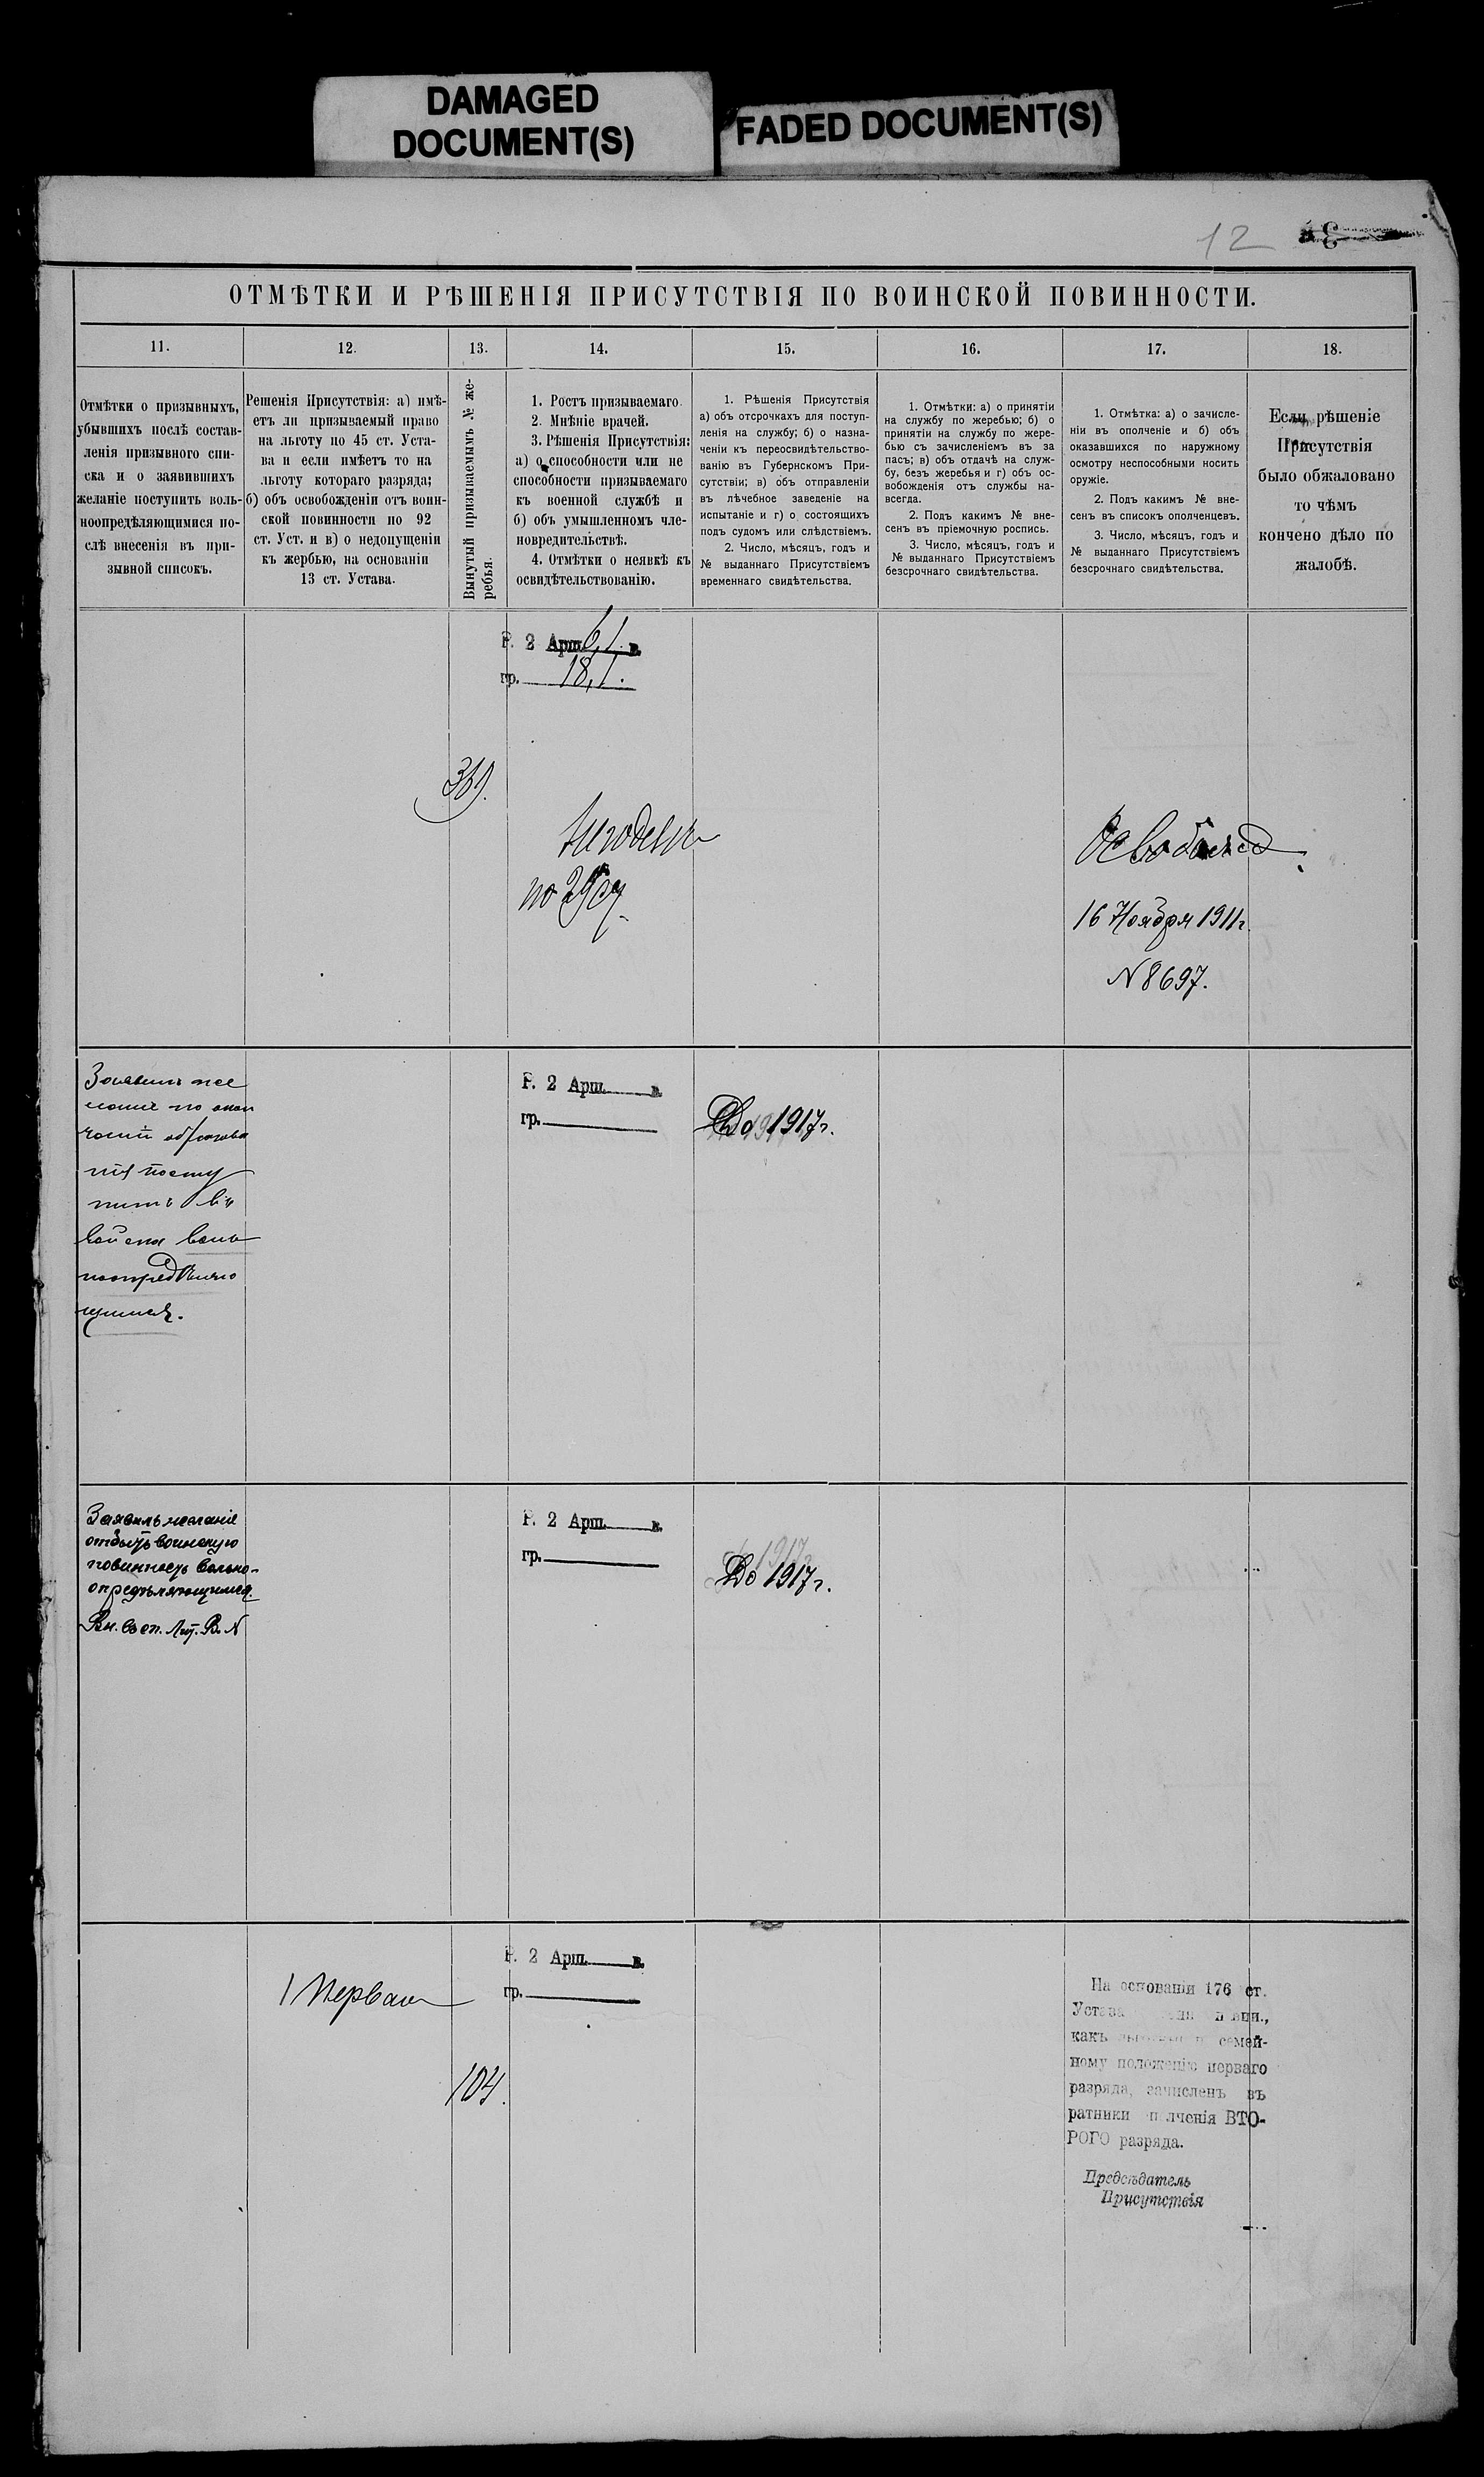 DAMAGED
DOCUMENT(S)
FADED DOCUMENT(S)
12
ОТМѢТКИ И РѢШЕНІЯ ПРИСУТСТВІЯ ПО ВОИНСКОЙ ПОВИННОСТИ.
11.
12.
13.
14.
15.
16.
17.
18.
Отмѣтки о призывныхъ,
убывшихъ послѣ состав-
ленія призывного спи-
ска и о заявившихъ
желаніе поступить воль-
ноопредѣляющимися по-
слѣ внесенія въ при-
зывной списокъ.
Решенія Присутствія: а) имѣ-
етъ ли призываемый право
на льготу по 45 ст. Уста-
ва и если имѣетъ то на
льготу котораго разряда;
б) объ освобожденіи отъ воин-
ской повинности по 92
ст. Уст. и в) о недопущеніи
къ жербью, на основаніи
13 ст. Устава.
Вынутый призываемымъ № же-
ребья.
1. Ростъ призываемаго.
2. Мнѣніе врачей.
3. Рѣшенія Присутствія:
а) о способности или не
способности призываемаго
къ военной службѣ и
б) объ умышленномъ чле-
новредительствѣ.
4. Отмѣтки о неявкѣ къ
освидѣтельствованію.
1. Рѣшенія Присутствія
а) объ отсрочкахъ для поступ-
ленія на службу; б) о назна-
ченіи къ переосвидѣтельство-
ванію въ Губернскомъ При-
сутствіи; в) объ отправленіи
въ лѣчебное заведеніе на
испытаніе и г) о состоящихъ
подъ судомъ или слѣдствіемъ.
2. Число, мѣсяцъ, годъ и
№ выданнаго Присутствіемъ
временнаго свидѣтельства.
1. Отмѣтки: а) о принятіи
на службу по жеребью; б) о
принятіи на службу по жере-
бью съ зачисленіемъ въ за
пасъ; в) объ отдачѣ на служ-
бу, безъ жеребья и г) объ ос-
вобожденія отъ службы на-
всегда.
2. Подъ какимъ № вне-
сенъ въ пріемочную роспись.
3. Число, мѣсяцъ, годъ и
№ выданнаго Присутствіемъ
безсрочнаго свидѣтельства.
1. Отмѣтка: а) о зачисле-
ніи въ ополченіе и б) объ
оказавшихся по наружному
осмотру неспособными носить
оружіе.
2. Подъ какимъ № вне-
сенъ въ списокъ ополченцевъ.
3. Число, мѣсяцъ, годъ и
№ выданнаго Присутствіемъ
безсрочнаго свидѣтельства.
Если рѣшеніе
Присутствія
было обжаловано
то чѣмъ
кончено дѣло по
жалобѣ.
Р. 2 Арш. 6,1 в.
гр. 18,1.
369.
Негоденъ
по 29 ст
Освобожд.
16 Ноября 1911г.
N 8697.
Заявилъ же
ланіе по окон
чаніи образова
нія посту
пить въ
войска воль
ноопредѣляю
щимся.
Р. 2 Арш. в.
гр.
До 1917г.
Заявилъ желаніе
отбыть воинскую
повинность вольно-
опредѣляющимся.
Вн. въ сп. Лит. В. N
Р. 2 Арш. в.
гр.
До 1917г.
1 Первая
104.
Р. 2 Арш. в.
гр.
На основаніи 176 ст.
Устава
какъ семей-
ному положенію перваго
разряда, зачисленъ въ
ратники ополченія ВТО-
РОГО разряда.
Предсѣдатель
Присутствія